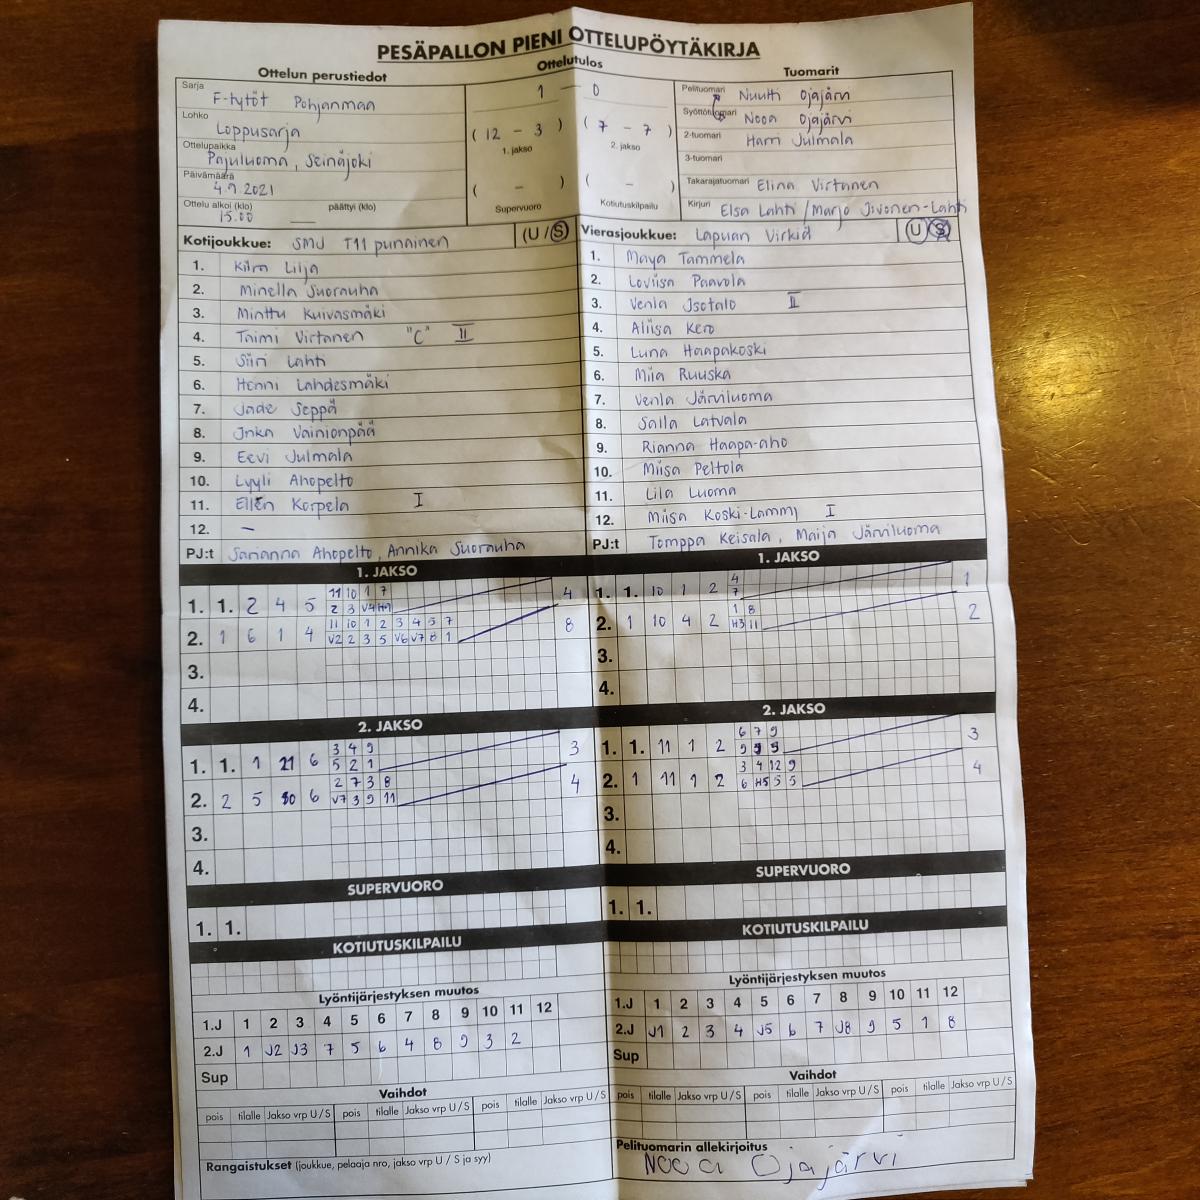 PESÄPALLON PIENI OTTELUPÖYTÄKIRJA
Ottelun perustiedot
Ottelutulos
Tuomarit
Sarja F-tytöt Pohjanmaa
Lohko Loppusarja
Ottelupaikka Pajuluoma, Seinäjoki
Päivämäärä 4.9.2021
Ottelu alkoi (klo) 15.00 päättyi (klo)
1 — 0
( 12 - 3 ) ( 7 - 7 )
1. jakso 2. jakso
( - ) ( - )
Supervuoro Kotiutuskilpailu
Pelituomari Nuutti Ojajärvi
Syöttötuomari Nooa Ojajärvi
2-tuomari Harri Julmala
3-tuomari
Takarajatuomari Elina Virtanen
Kirjuri Elsa Lahti / Marjo Jivonen-Lahti
Kotijoukkue: SMJ T11 punainen (U / S)
1. Kiira Lilja
2. Minella Suorauha
3. Minttu Kuivasmäki
4. Taimi Virtanen "C" II
5. Siiri Lahti
6. Henni Lahdesmäki
7. Jade Seppä
8. Inka Vainionpää
9. Eevi Julmala
10. Lyyli Ahopelto
11. Ellen Korpela I
12. —
PJ:t Sarianna Ahopelto, Annika Suorauha
Vierasjoukkue: Lapuan Virkiä U S
1. Maya Tammela
2. Loviisa Paavola
3. Venla Isotalo II
4. Aliisa Kero
5. Luna Haapakoski
6. Miia Ruuska
7. Venla Järviluoma
8. Salla Latvala
9. Rianna Haapa-aho
10. Miisa Peltola
11. Lila Luoma
12. Miisa Koski-Lammi I
PJ:t Tomppa Keisala, Maija Järviluoma
1. JAKSO
11 10 1 7
1. 1. 2 4 5 2 3 V4 H9 4
11 10 1 2 3 4 5 7
2. 1 6 1 4 V2 2 3 5 V6 V7 8 1 8
3.
4.
1. JAKSO
4
1. 1. 10 1 2 7 1
1 8
2. 1 10 4 2 H3 11 2
3.
4.
2. JAKSO
3 4 9
1. 1. 1 21 6 5 2 1 3
2 7 3 8
2. 2 5 10 6 V7 3 9 11 4
3.
4.
2. JAKSO
6 7 9
1. 1. 11 1 2 9 9 3
3 4 12 9
2. 1 11 1 2 6 H5 5 5 4
3.
4.
SUPERVUORO
1. 1.
SUPERVUORO
1. 1.
KOTIUTUSKILPAILU
KOTIUTUSKILPAILU
Lyöntijärjestyksen muutos
1.J 1 2 3 4 5 6 7 8 9 10 11 12
2.J 1 J2 J3 7 5 6 4 8 9 3 2
Sup
Lyöntijärjestyksen muutos
1.J 1 2 3 4 5 6 7 8 9 10 11 12
2.J J1 2 3 4 J5 6 7 J8 9 5 1 8
Sup
Vaihdot
pois tilalle Jakso vrp U / S pois tilalle Jakso vrp U / S pois tilalle Jakso vrp U / S
Vaihdot
pois tilalle Jakso vrp U / S pois tilalle Jakso vrp U / S pois tilalle Jakso vrp U / S
Rangaistukset (joukkue, pelaaja nro, jakso vrp U / S ja syy)
Pelituomarin allekirjoitus
Nooa Ojajärvi